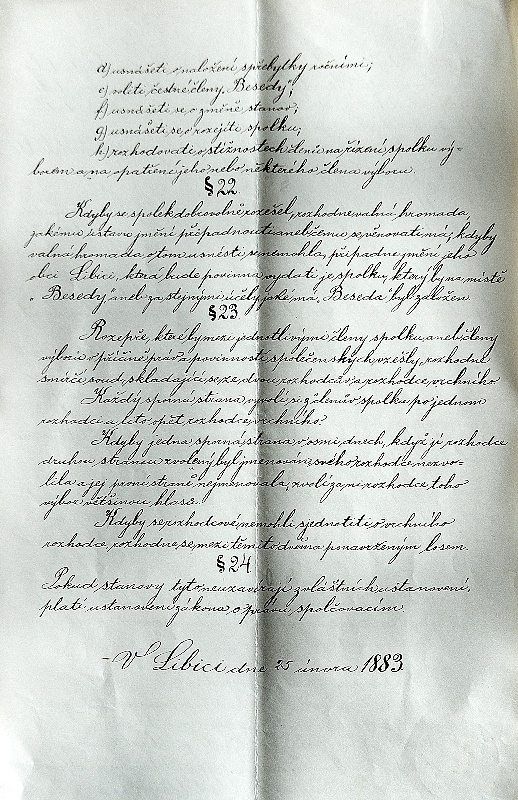 d) usnášeti o naložení s přebytky ročními;
e) voliti čestné členy „Besedy“;
f) usnášeti se o změně stanov;
g) usnášeti se o rozejití spolku;
h) rozhodovati o stížnostech členů na řízení spolku vý-
borem a na opatření jeho nebo některého člena výboru.
§ 22.
Kdyby se spolek dobrovolně rozešel, rozhodne valná hromada,
jakému ústavu jmění připadnouti aneb čemu se věnovati má; kdyby
valná hromada o tom usnésti se nemohla, připadne jmění jeho
obci Libici, která bude povinna vydati je spolku, který by na místě
„Besedy“ aneb za stejnými účely, jaké má, Beseda byl založen.
§ 23
Rozepře, které by mezi jednotlivými členy spolku aneb členy
výboru v příčině práv a povinností společenských vzešly, rozhodne
smírčí soud, skládající se ze dvou rozhodců a rozhodce vrchního.
Každá sporná strana vyvolí si z členův spolku po jednom
rozhodci a tito opět rozhodce vrchního.
Kdyby jedna sporná strana v osmi dnech, když jí rozhodce
druhou stranou zvolený byl jmenován, svého rozhodce nezvo-
lila a jej první straně nejmenovala, zvolí za ni rozhodce toho
výbor většinou hlasů.
Kdyby se rozhodcové nemohli sjednotiti o vrchního
rozhodce, rozhodne se mezi těmito dvěma pronavrženým losem.
§ 24
Pokud stanovy tyto neuzavírají zvláštních ustanovení,
platí ustanovení zákona o právu spolčovacím.
V Libici dne 25 února 1883.